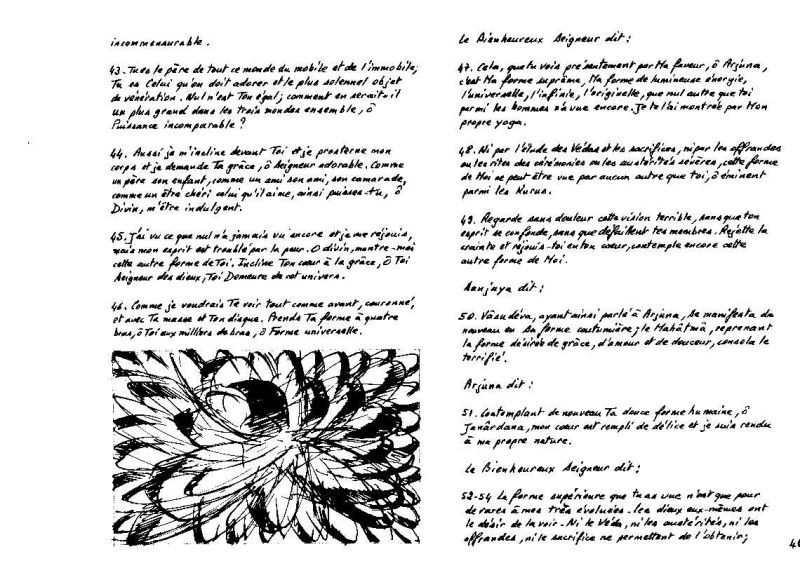 incommensurable.
43. Tu es le père de tout ce monde du mobile et de l'immobile;
Tu es Celui qu'on doit adorer et le plus solennel objet
de vénération. Nul n'est Ton égal; comment en serait-il
un plus grand dans les trois mondes ensemble, ô
Puissance incomparable?
44. Aussi je m'incline devant Toi et je prosterne mon
corps et je demande Ta grâce, ô Seigneur adorable. Comme
un père son enfant, comme un ami son ami, son camarade,
comme un être chéri celui qu'il aime, ainsi puisses-tu, ô
Divin, m'être indulgent.
45. J'ai vu ce que nul n'a jamais vu encore et je me réjouis,
mais mon esprit est troublé par la peur. O divin, montre-moi
cette autre forme de Toi. Incline Ton cœur à la grâce, ô Toi
Seigneur des dieux, Toi Demeure de cet univers.
46. Comme je voudrais Te voir tout comme avant, couronné,
et avec Ta masse et Ton disque. Prends Ta forme à quatre
bras, ô Toi aux milliers de bras, ô Forme universelle.
Le Bienheureux Seigneur dit:
47. Cela, que tu vois présentement par Ma faveur, ô Arjuna,
c'est Ma forme suprême, Ma forme de lumineuse énergie,
l'universelle, l'infinie, l'originelle, que nul autre que toi
parmi les hommes n'a vue encore. Je te l'ai montrée par Mon
propre yoga.
48. Ni par l'étude des Védas et les sacrifices, ni par les offrandes
ou les rites des cérémonies ou les austérités sévères, cette forme
de Moi ne peut être vue par aucun autre que toi, ô éminent
parmi les Kurus.
49. Regarde sans douleur cette vision terrible, sans que ton
esprit se confonde, sans que défaillent tes membres. Rejette la
crainte et réjouis-toi en ton cœur, contemple encore cette
autre forme de Moi.
Sanjaya dit:
50. Vâsudéva, ayant ainsi parlé à Arjuna, se manifesta de
nouveau en Sa forme coutumière; le Mahâtmâ, reprenant
la forme désirée de grâce, d'amour et de douceur, consola le
terrifié.
Arjuna dit:
51. Contemplant de nouveau Ta douce forme humaine, ô
Janârdana, mon cœur est rempli de délice et je suis rendu
à ma propre nature.
Le Bienheureux Seigneur dit:
52-54 La forme supérieure que tu as vue n'est que pour
de rares âmes très évoluées. Les dieux eux-mêmes ont
le désir de la voir. Ni le Véda, ni les austérités, ni les
offrandes, ni le sacrifice ne permettent de l'obtenir;